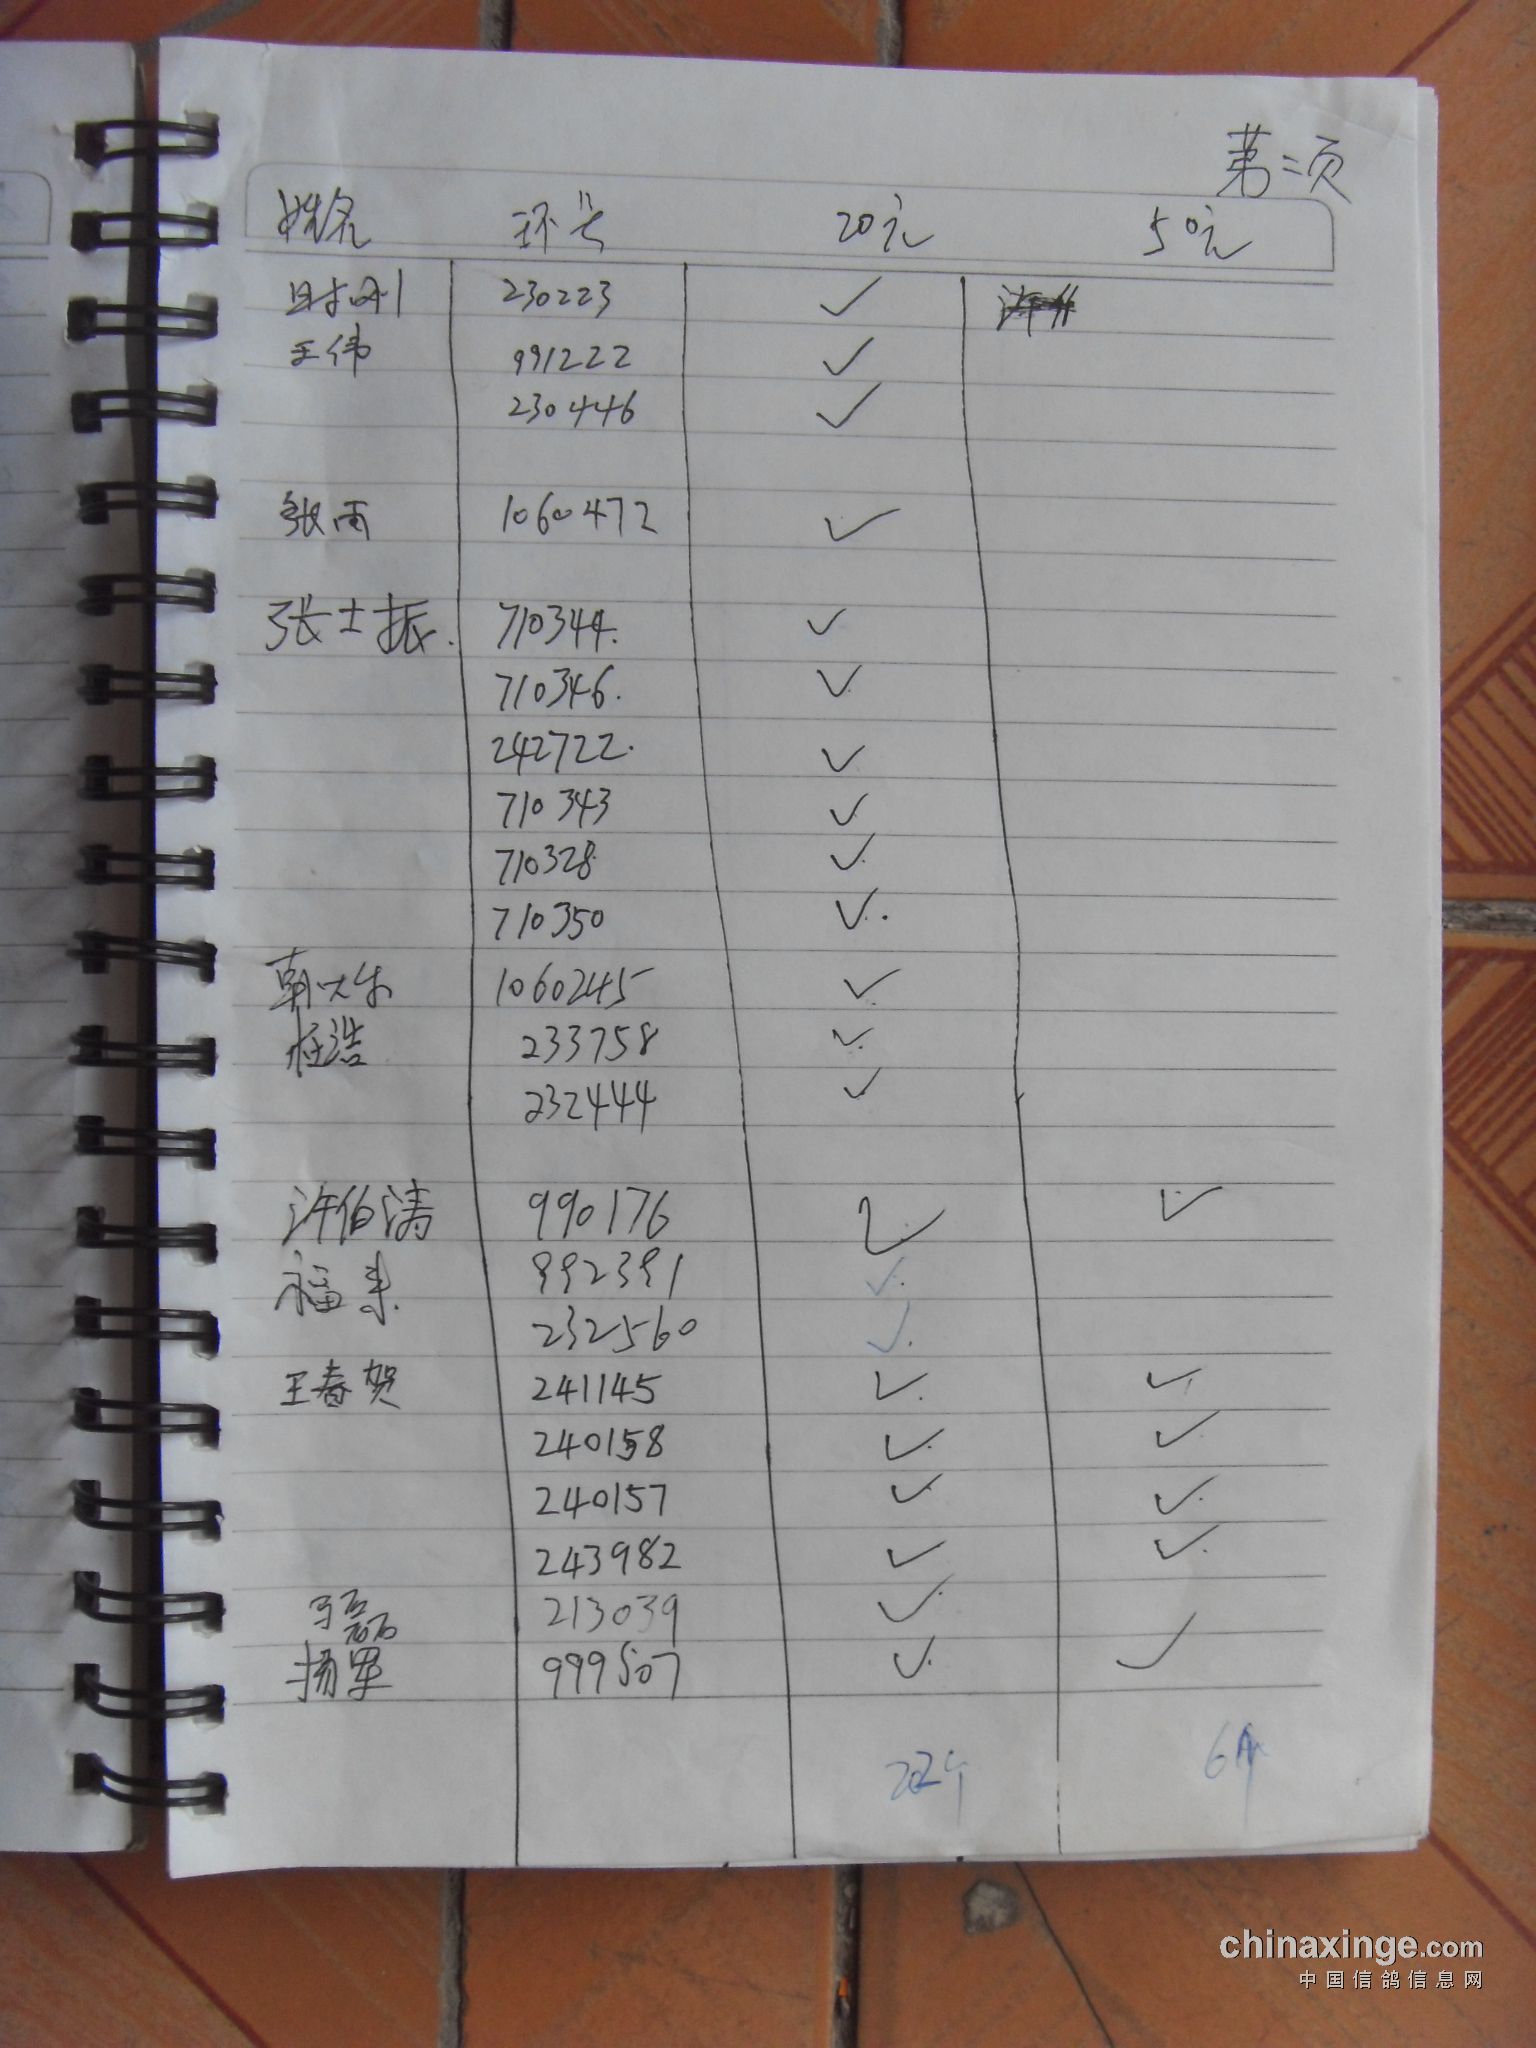 第二页
姓名 环号 20元 50元
时刚 230223 ✓
王伟 991222 ✓
230446 ✓
张雨 1060472 ✓
张士振. 710344. ✓
710346. ✓
242722. ✓
710343 ✓
710328 ✓
710350 ✓
1060245 ✓
浩 233758 ✓
232444 ✓
许伯涛 990176 ✓ ✓
福来 992391 ✓
232560 ✓
王春贺 241145 ✓ ✓
240158 ✓ ✓
240157 ✓ ✓
243982 ✓ ✓
磊 213039 ✓
杨军 999507 ✓ ✓
22个 6个
chinaxinge.com
中国信鸽信息网